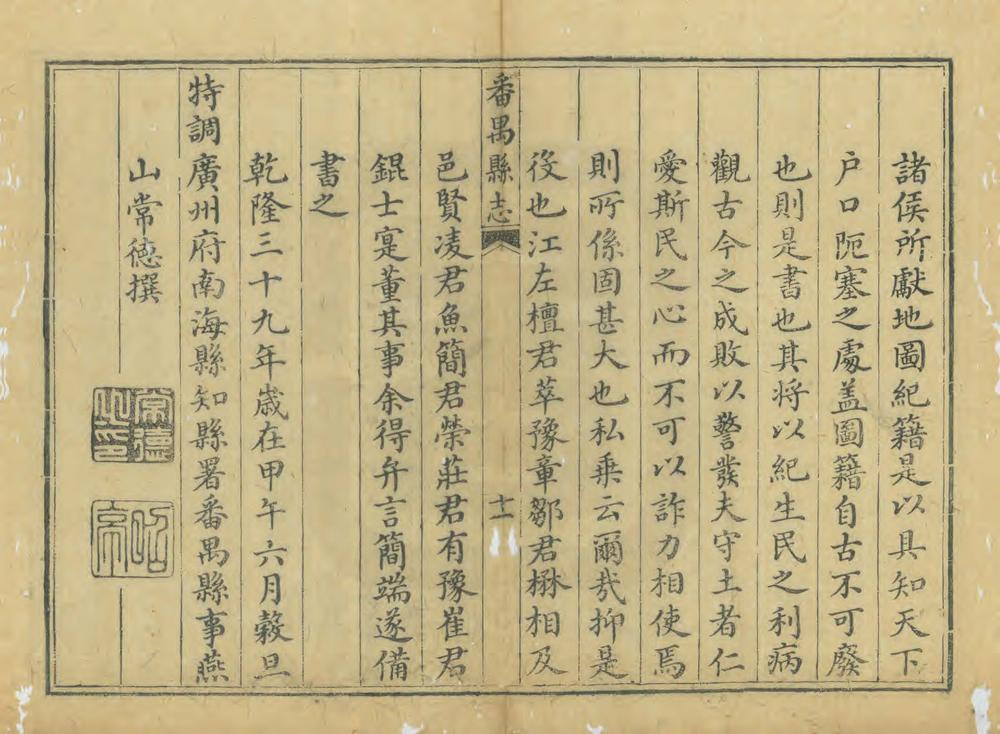 諸侯所獻地圖紀籍是以具知天下
户口阨塞之處盖圖籍自古不可廢
也則是書也其将以紀生民之利病
觀古今之成敗以警發夫守土者仁
愛斯民之心而不可以詐力相使焉
則所係固甚大也私乗云爾㢤抑是
役也江左檀君萃豫章鄒君楙相及
番禺縣志
十一
邑賢凌君魚簡君榮莊君有豫崔君
錕士寔董其事余得弁言簡端遂備
書之
乾隆三十九年歲在甲午六月穀旦
特調廣州府南海縣知縣署番禺縣事燕
山常德撰
常德之印